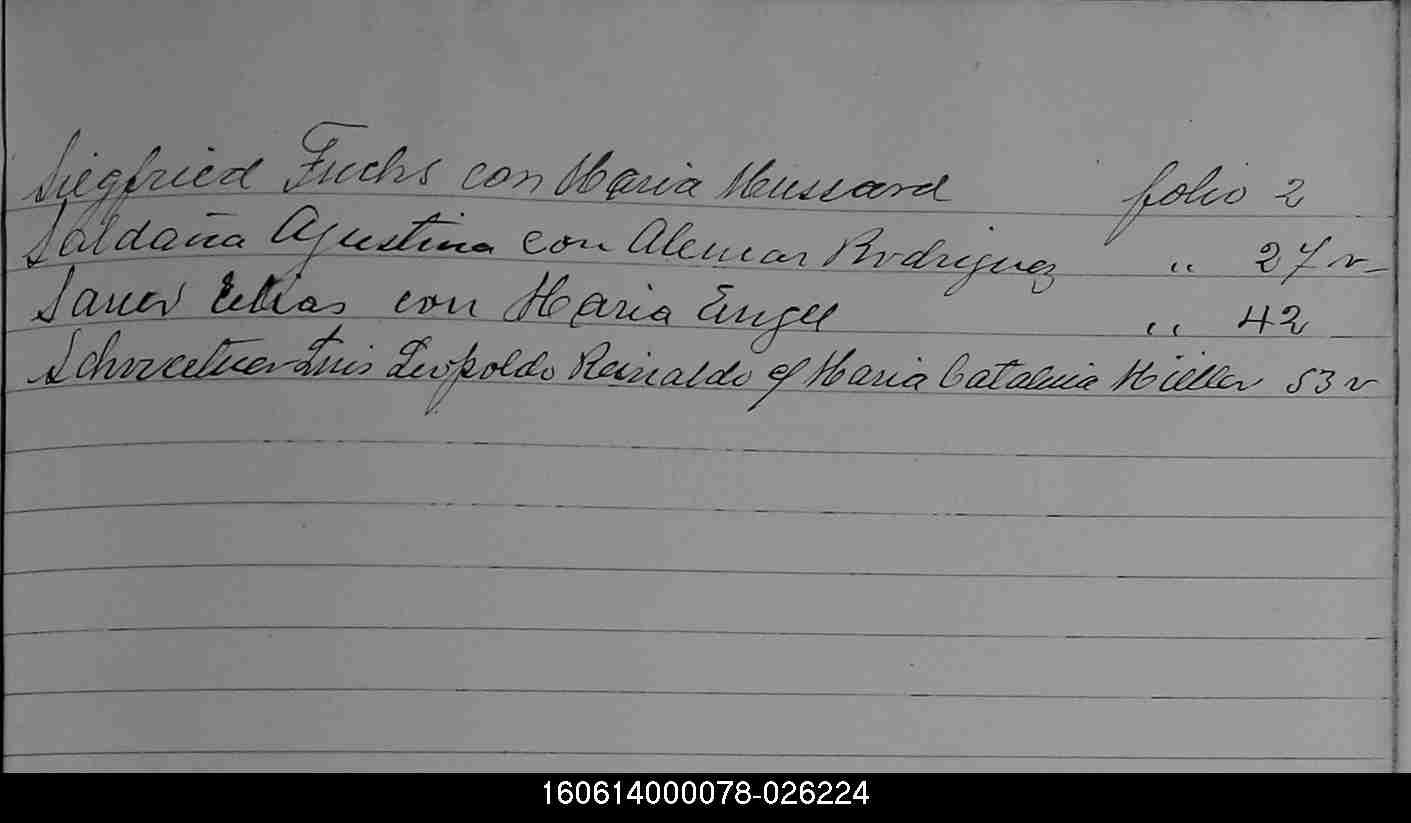 Siegfried Fuchs con Maria Mussard folio 2
Saldaña Agustina con Alemar Rodriguez " 27 v
Sauer Elias con Maria Engel " 42
Luis Leopoldo Reinaldo c/ Maria Catalina Miller 53 v
160614000078-026224